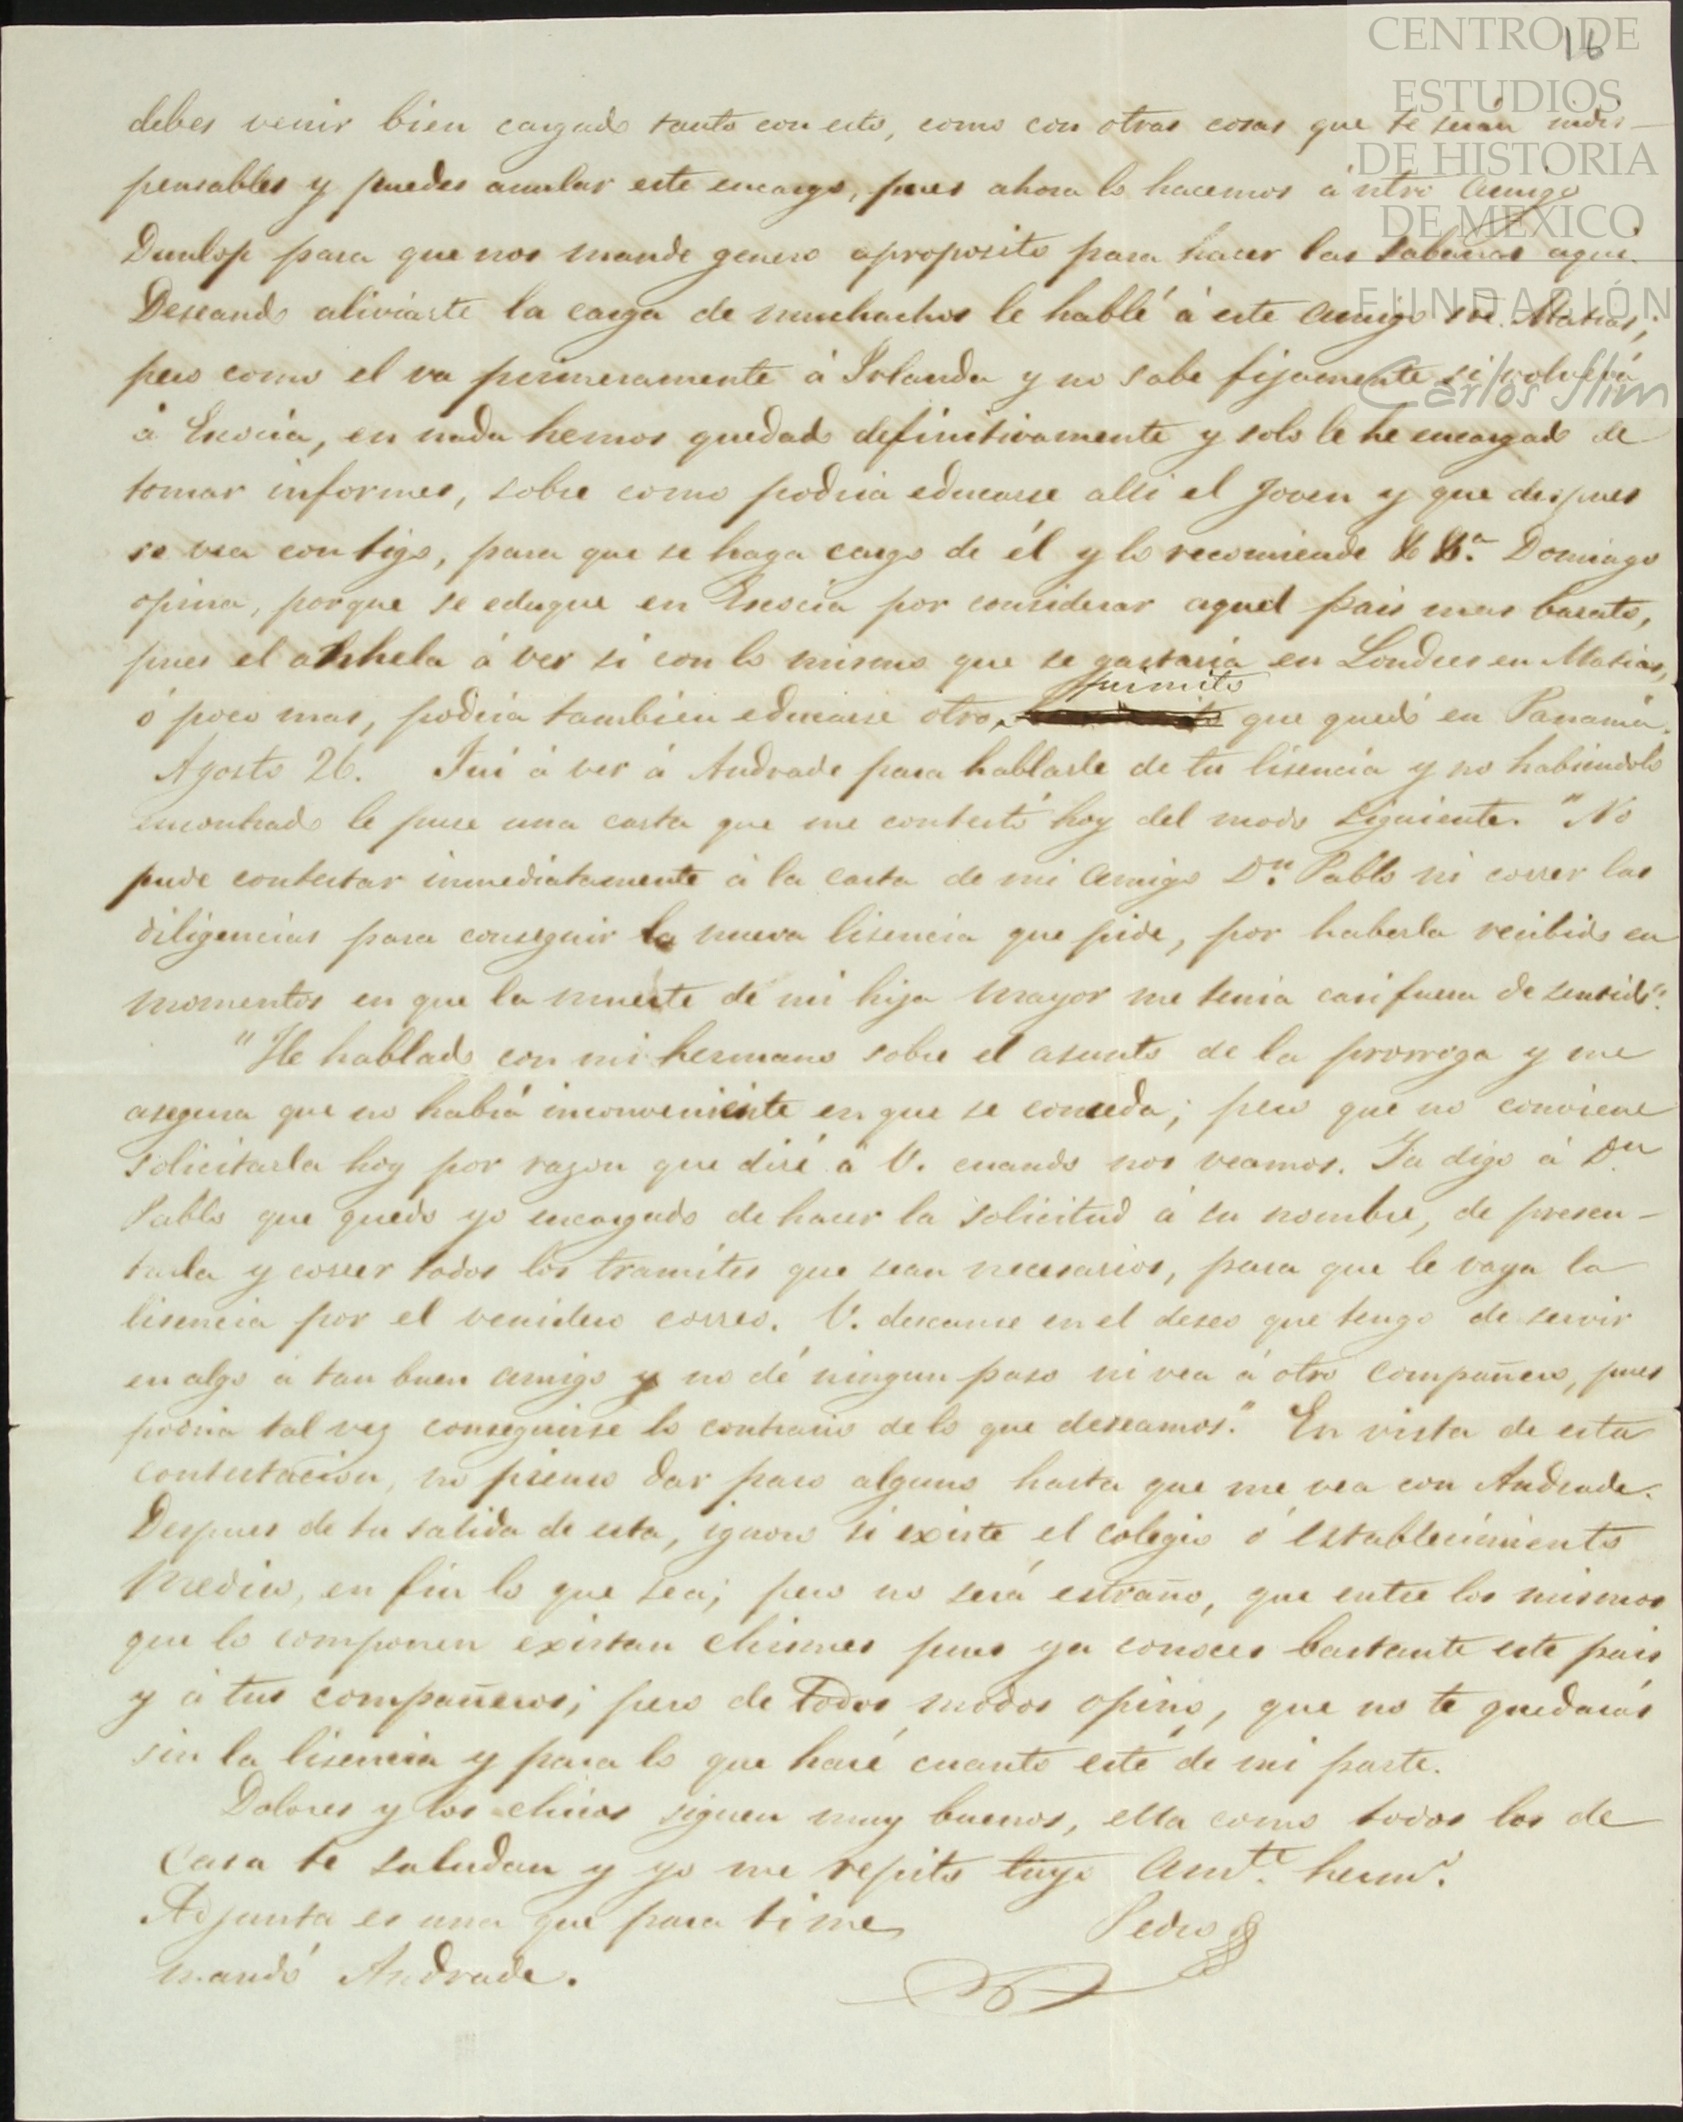 CENTRO DE
ESTUDIOS
DE HISTORIA
DE MÉXICO
FUNDACIÓN
Carlos Slim
16
debes venir bien cargado tanto con esto, como con otras cosas que te serán indis-
pensables y puedes anular este encargo, pues ahora lo hacemos á ntro amigo
Dunlop para que nos mande genero aproposito para hacer las sabanas aqui.
Deseando aliviarte la carga de muchachos le hablé á este amigo sre. Matias;
pero como el va primeramente á Irlanda y no sabe fijamente si volverá
á Escocia, en nada hemos quedado definitivamente y solo le he encargado de
tomar informes, sobre como podria educarse alli el Joven y que despues
se vea contigo, para que se haga cargo de él y lo recomiende Domingo
opina, porque se eduque en Escocia por considerar aquel pais mas barato,
pues el anhela á ver si con lo mismo que se gastaria en Londres en Matias,
ó poco mas, podria tambien educarse otro primito que quedó en Panamá.
Agosto 26. Fui á ver á Andrade para hablarle de tu lisencia y no habiendolo
encontrado le puse una carta que me contestó hoy del modo siguiente. "No
pude contestar inmediatamente á la carta de mi amigo Dn. Pablo ni correr las
diligencias para conseguir la nueva lisencia que pide, por haberla recibido en
momentos en que la muerte de mi hija mayor me tenia casi fuera de sentido".
"He hablado con mi hermano sobre el asunto de la prorroga y me
asegura que no habrá inconveniente en que se conceda; pero que no conviene
solicitarla hoy por razon que diré á V. cuando nos veamos. Ya digo á Dn
Pablo que quedo yo encargado de hacer la solicitud á su nombre, de presen-
tarla y correr todos los tramites que sean necesarios, para que le vaya la
lisencia por el venidero correo. V. descanse en el deseo que tengo de servir
en algo á tan buen amigo y no dé ningun paso ni vea á otro compañero, pues
podria tal vez conseguirse lo contrario de lo que deseamos." En vista de esta
contestacion, no pienso dar paso alguno hasta que me vea con Andrade.
Despues de tu salida de esta, ignoro si existe el colegio ó establecimiento
Medico, en fin lo que sea; pero no será estraño, que entre los mismos
que lo componen existan chismes pues ya conoces bastante este pais
y á tus compañeros; pero de todos modos opino, que no te quedarás
sin la lisencia y para lo que haré cuanto esté de mi parte.
Dolores y los chicos siguen muy buenos, ella como todos los de
casa te saludan y yo me repito tuyo amte. hermo.
Adjunta es una que para ti me
Pedro
mandó Andrade.